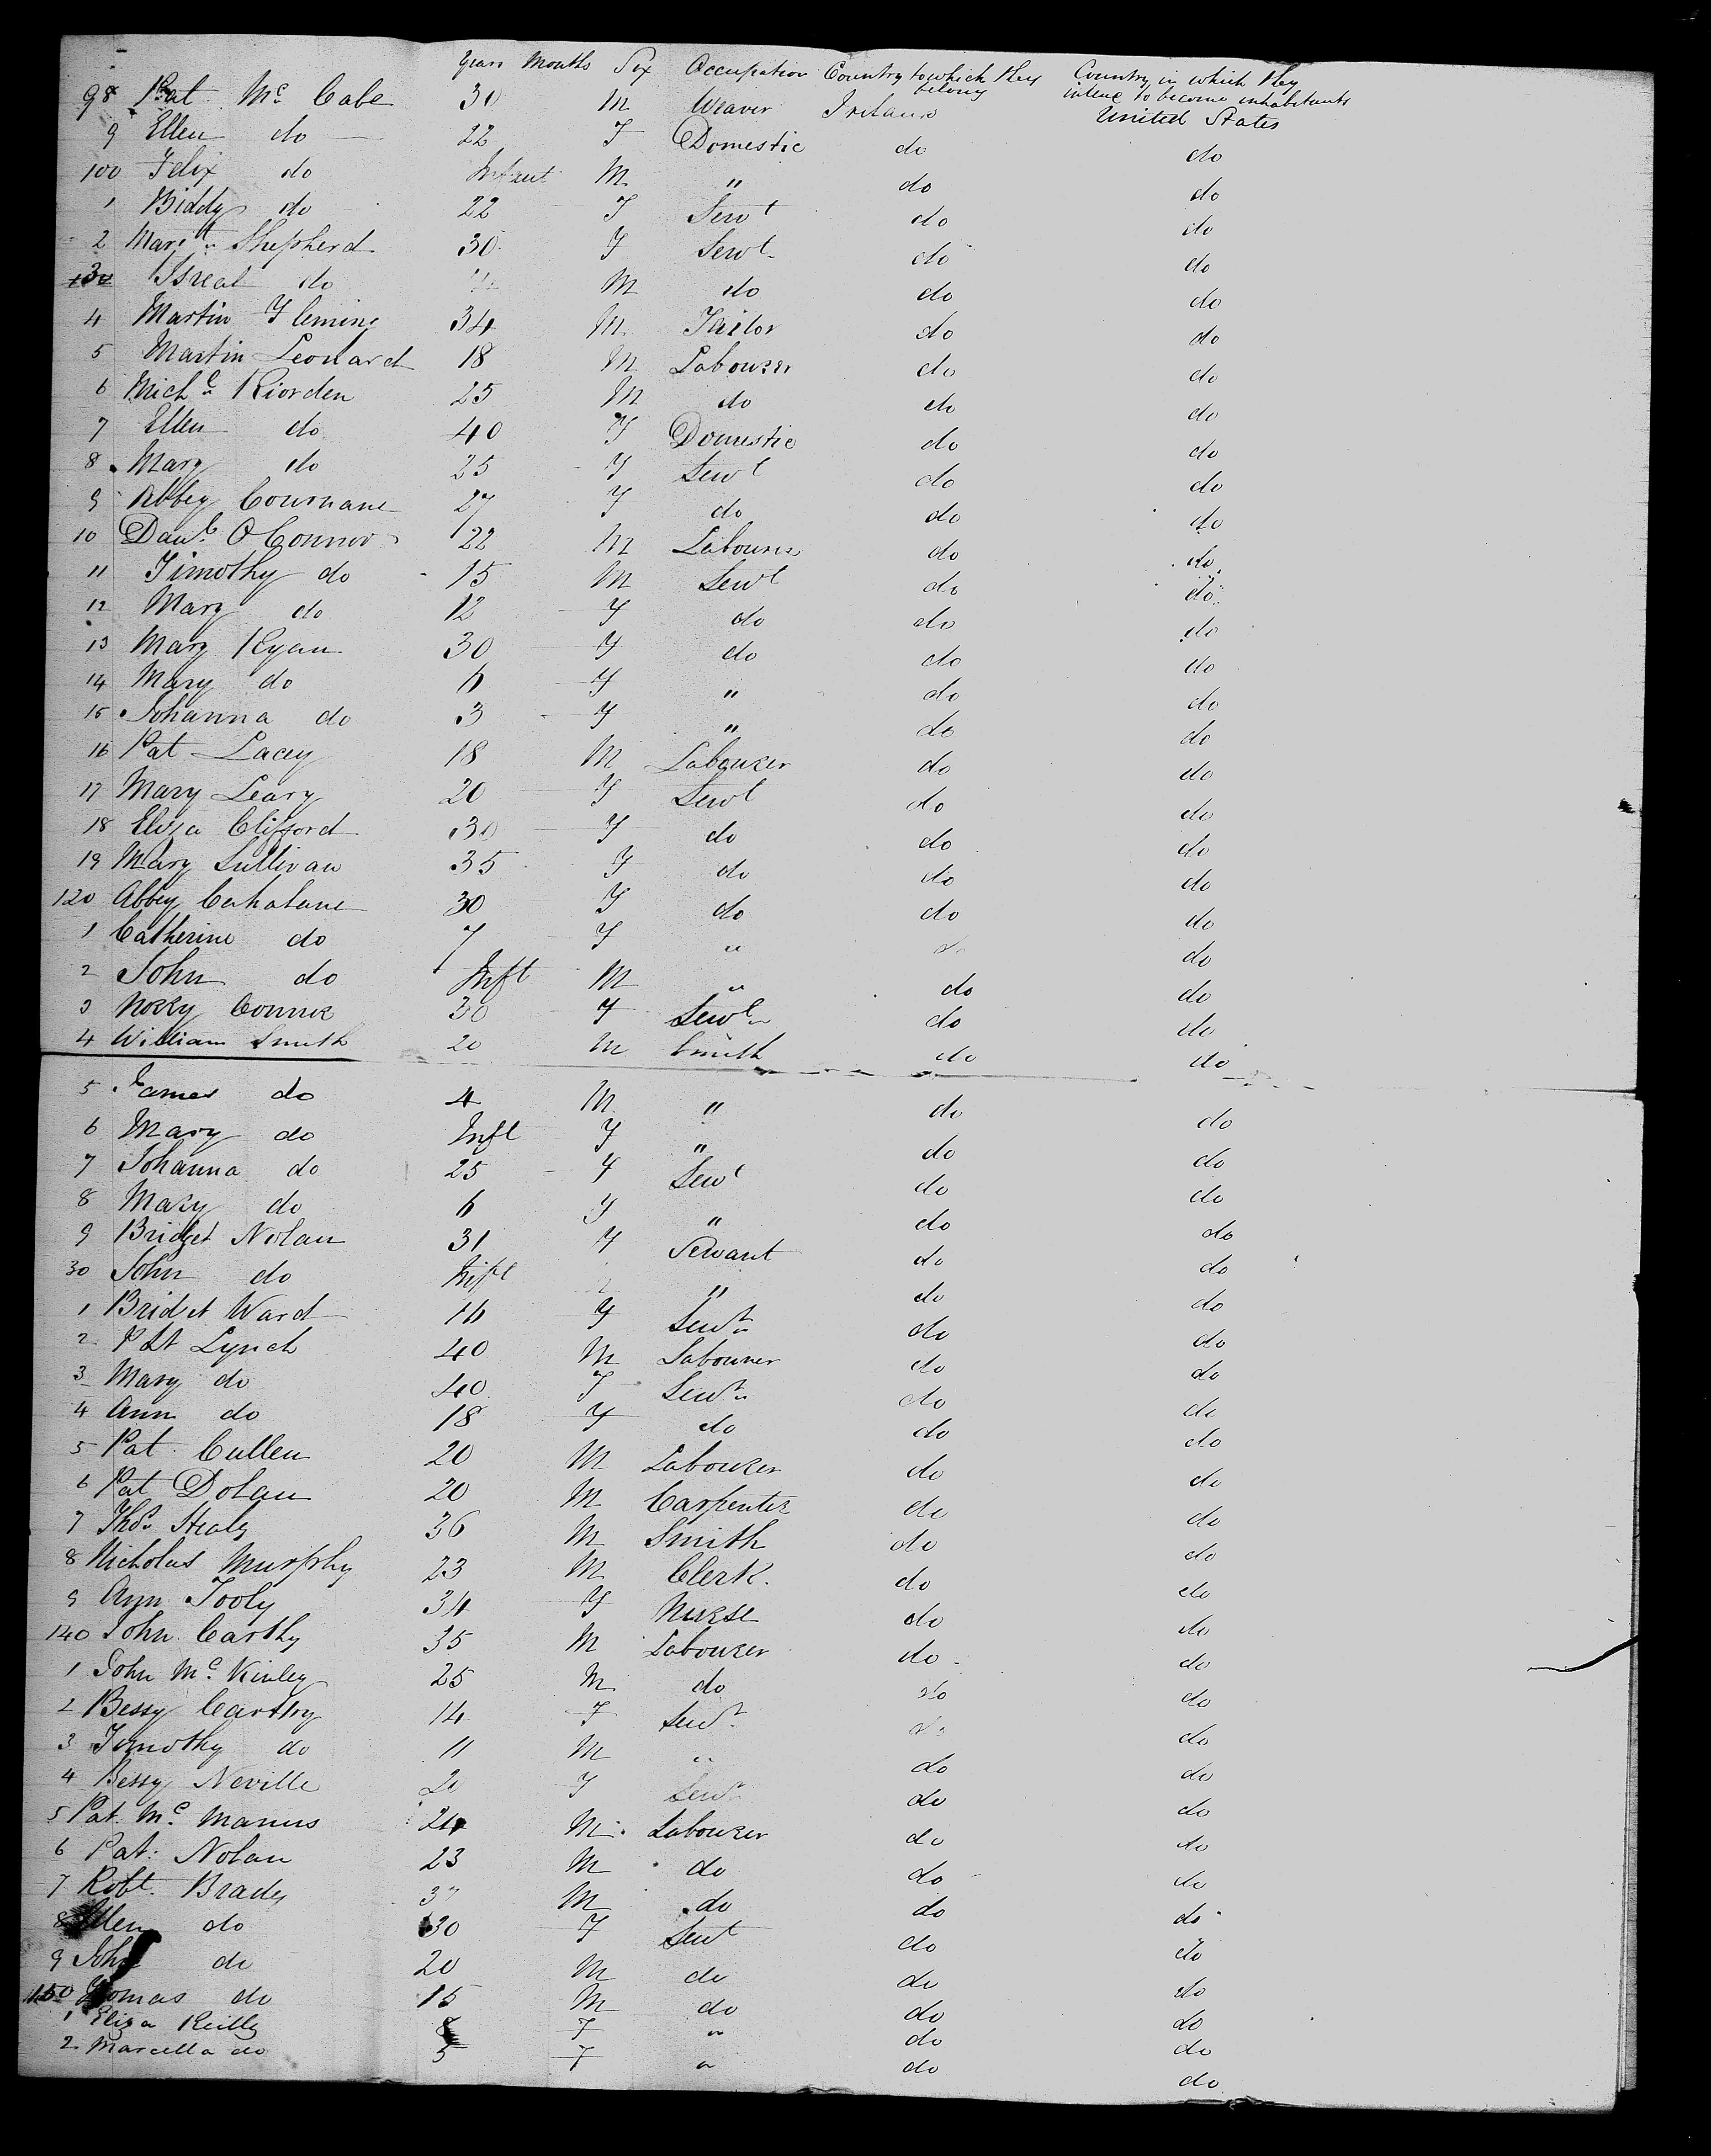 Years Months Sex Occupation Country to which they belong Country in which they intend to become inhabitants
98 Pat Mc Cabe 30 M Weaver Ireland United States
9 Ellen do 22 F Domestic do do
100 Felix do Infant M " do do
1 Biddy do 22 F Servt do do
2 Margt Shepherd 30 F Servt do do
3 Isreal do M do do do
4 Martin Fleming 34 M Tailor do do
5 Martin Leonard 18 M Labourer do do
6 Michl Riorden 25 M do do do
7 Ellen do 40 F Domestic do do
8 Mary do 25 F Servt do do
9 Abbey Cournane 27 F do do do
10 Danl O Connor 22 M Labourer do do
11 Timothy do 15 M Servt do do
12 Mary do 12 F do do do
13 Mary Ryan 30 F do do do
14 Mary do 6 F " do do
15 Johanna do 3 F " do do
16 Pat Lacey 18 M Labourer do do
17 Mary Leary 20 F Servt do do
18 Eliza Clifford 30 F do do do
19 Mary Sullivan 35 F do do do
120 Abbey Cahalane 30 F do do do
1 Catherine do 7 F " do do
2 John do Inft M " do do
3 Norry Connor 30 F Servt do do
4 William Smith 20 M Smith do do
5 James do 4 M " do do
6 Mary do Inft F " do do
7 Johanna do 25 F Servt do do
8 Mary do 6 F " do do
9 Bridget Nolan 31 F Servant do do
30 John do Inft " do do
1 Bridget Ward 16 F Servt do do
2 Pat Lynch 40 M Labourer do do
3 Mary do 40 F Servt do do
4 Ann do 18 F do do do
5 Pat Cullen 20 M Labourer do do
6 Pat Dolan 20 M Carpenter do do
7 Thos Healy 36 M Smith do do
8 Nicholas Murphy 23 M Clerk. do do
9 Ann Tooly 34 F Nurse do do
140 John Carthy 35 M Labourer do do
1 John Mc Kinley 25 M do do do
2 Bessy Carthy 14 F Servt do do
3 Timothy do 11 M " do do
4 Bessy Neville 20 F Servt do do
5 Pat. Mc Manus 24 M Labourer do do
6 Pat: Nolan 23 M do do do
7 Robt. Brady M do do do
8 Ellen do 30 F Servt do do
9 John do 20 M do do do
150 Thomas do 15 M do do do
1 Eliza Reilly 8 F " do do
2 Marcella do 5 F " do do